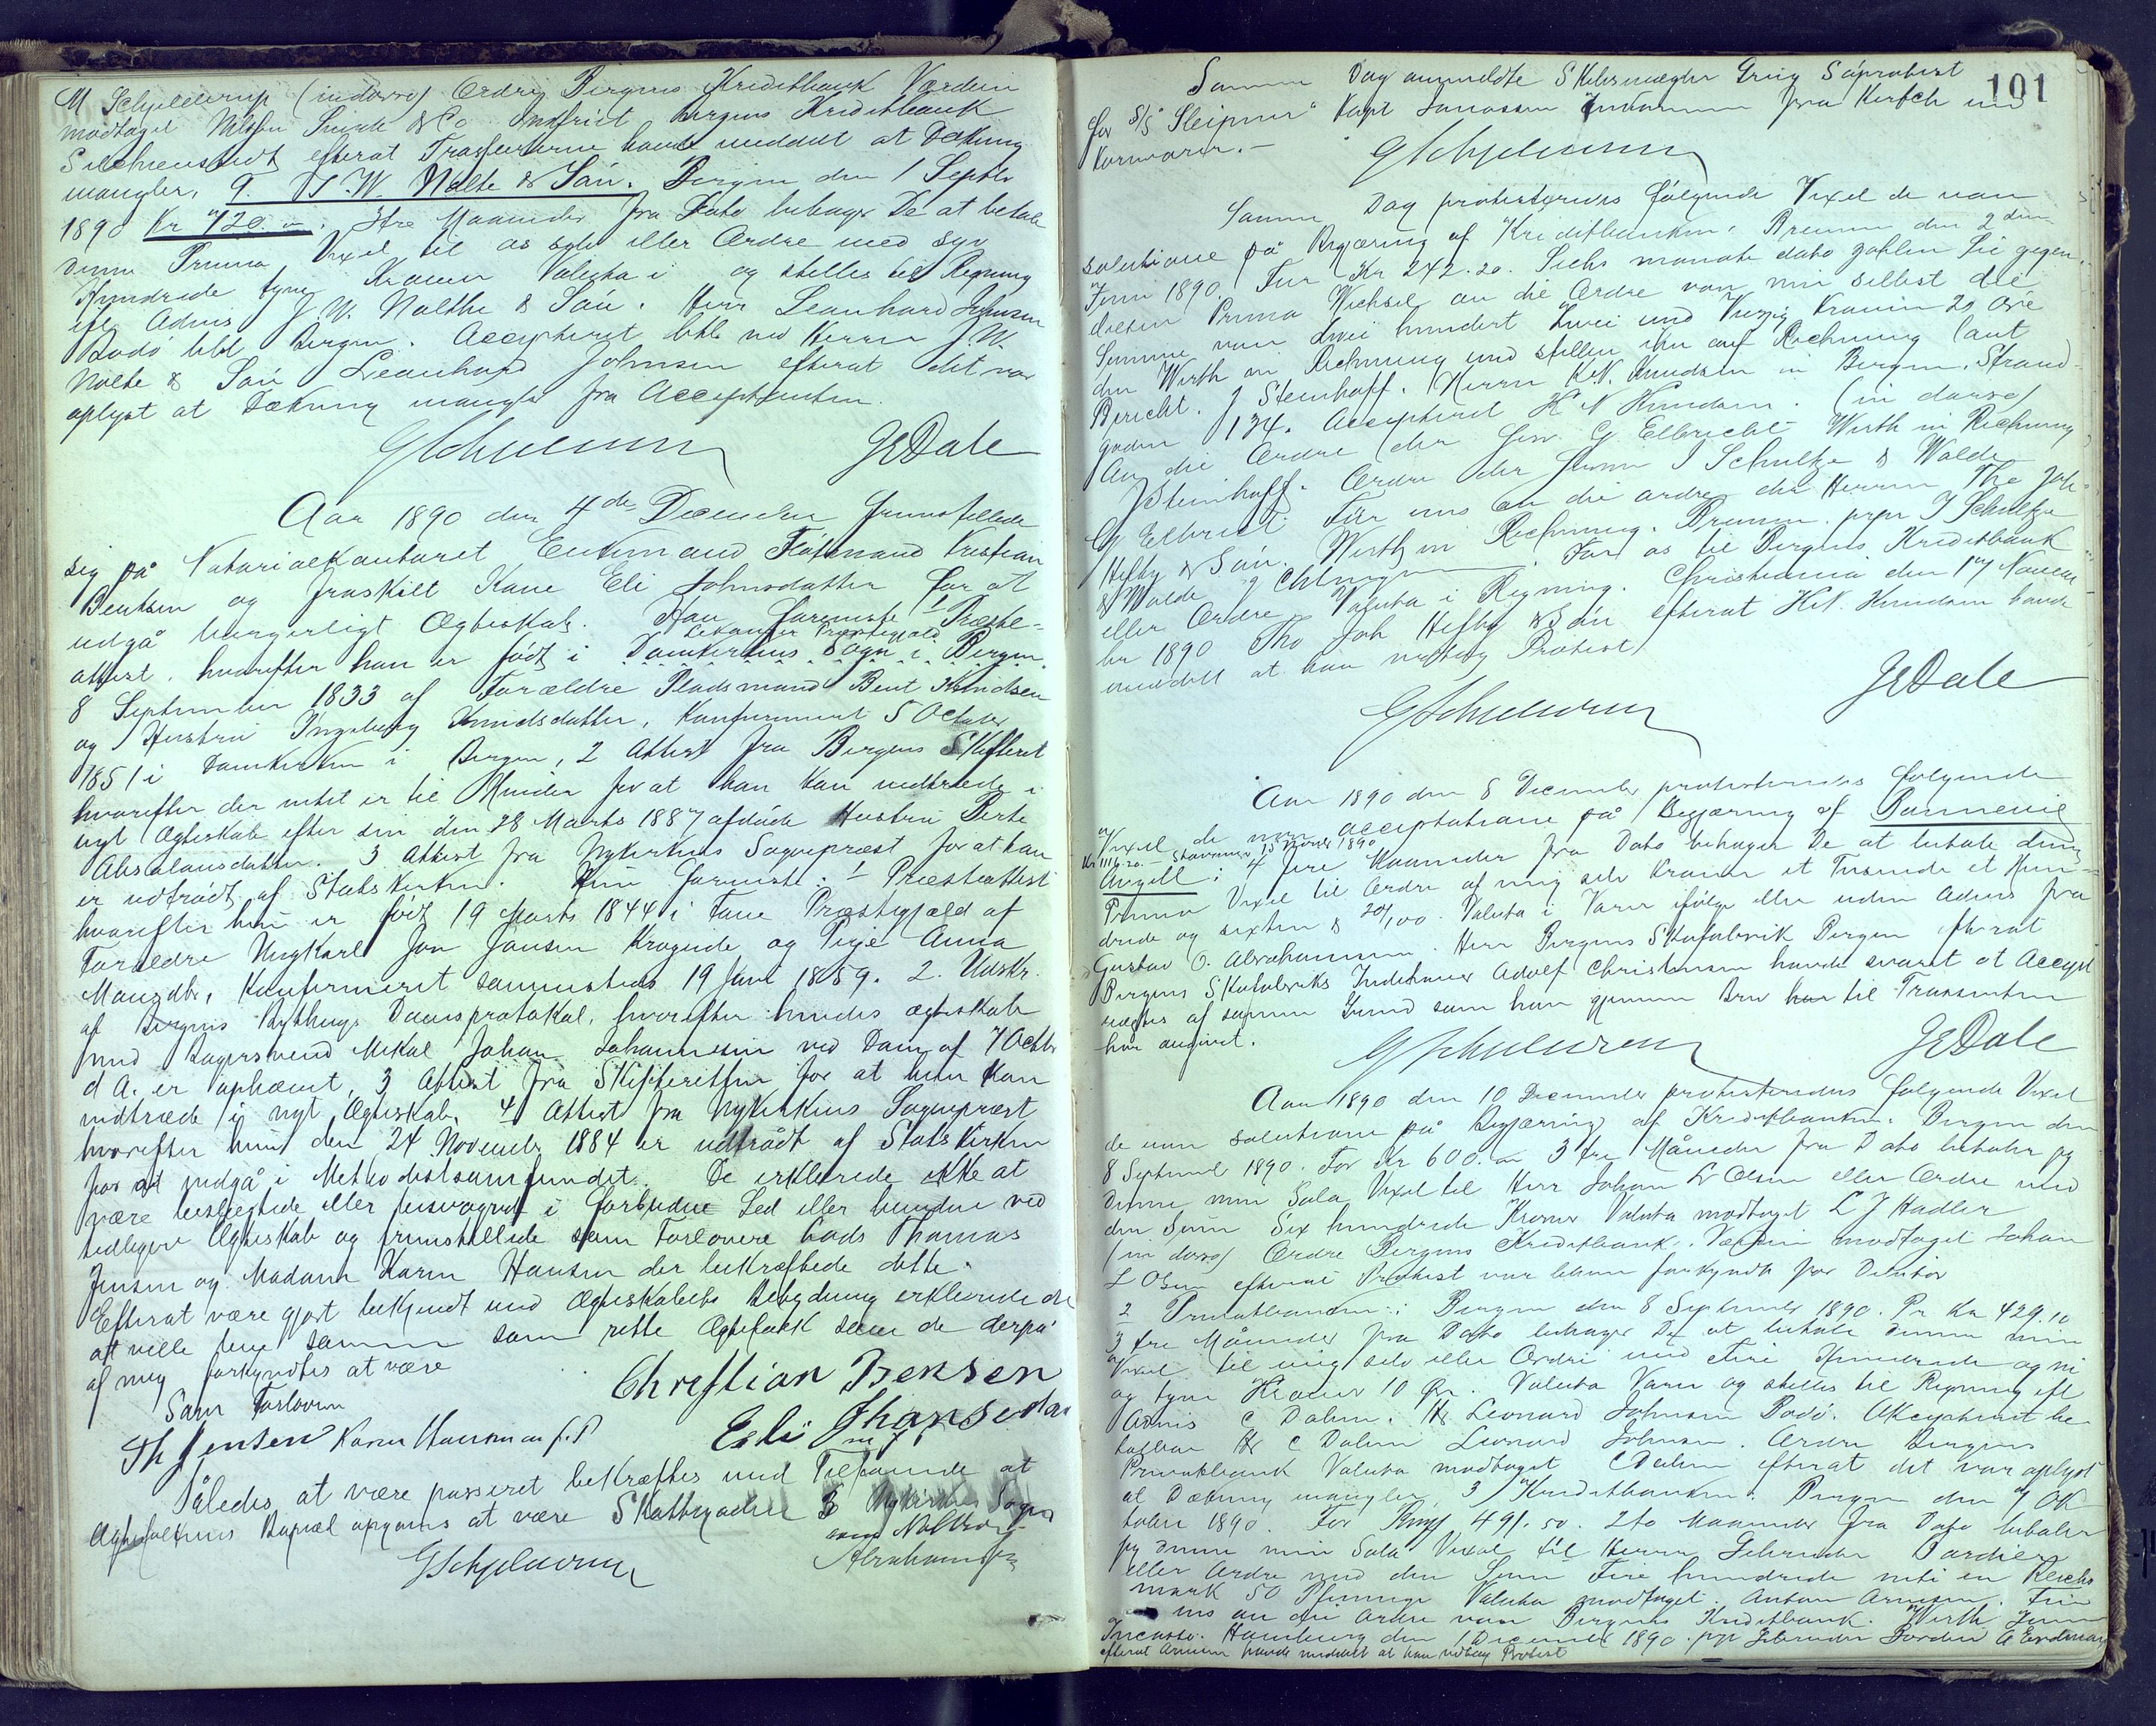 M Schjelderup (indorso) Ordre Bergens Kreditbank Værdien
modtaget Nilssen & Co Indfriet Bergens Kreditbank
efterat Trassenterne havde meddelt at Dækning
mangler. 9. J. W. Nolte & Søn. Bergen den 1 Septbr
1890 Kr 720.-. Tre Maaneder fra Dato behager De at betale
denne Prima Vexel til os selv eller Ordre med syv
Hundrede tyve Kroner Valuta i og stilles til Regning
ifl Advis J. W. Nolthe & Søn. Herr Leonhard Johnsen
Bodø btbl Bergen. Accepteret btbl ved Herrer J. W.
Nolte & Søn Leonhard Johnsen efterat det var
oplyst at Dækning mangler fra Acceptanten.
GSchjelderup JEDale
Aar 1890 den 4de December fremstillede
sig på Notarialkontoret Enkemand Kristian
Bentsen og fraskilt Kone Eli Johnsdatter for at
indgå borgerligt Ægteskab. Han foreviste 1 Præste-
attest, hvorefter han er født i Domkirkens Sogn i Bergen
Præstegjæld
8 September 1833 af Forældre Pladsmand Bent Knudsen
og Hustru Ingeborg Knudsdatter, Konfirmeret 5 October
1851 i Domkirken i Bergen, 2 Attest fra Bergens Skifteret
hvorefter der intet er til Hinder for at han kan indtræde i
nyt Ægteskab efter sin den 28 Marts 1887 afdøde Hustru Berte
Absalonsdatter. 3 Attest fra Nykirkens Sognepræst for at han
er udtrådt af Statskirken. Hun foreviste: 1 Præsteattest
hvorefter hun er født 19 Marts 1844 i Fane Præstegjæld af
Forældre Ungkarl Jon Jansen Krogeide og Pige Anna
Mansdtr, Konfirmeret sammesteds 19 Juni 1859. 2. Udskr.
af Bergens Bythings Domsprotokol, hvorefter hendes Ægteskab
med Bagersvend Mikal Johan Johannesen ved Dom af 7 Octbr
d A. er ophævet, 3 Attest fra Skifteretten for at hun kan
indtræde i nyt Ægteskab. 4 Attest fra Nykirkens Sognepræst
hvorefter hun den 24 November 1884 er udtrådt af Statskirken
for at indgå i Methodistsamfundet. De erklærede ikke at
være beslægtede eller besvogrede i forbudne Led eller bundne ved
tidligere Ægteskab og fremstillede som Forlovere Thomas
Jensen og Madam Karen Hansen der bekræftede dette.
Efterat være gjort bekjendt med Ægteskabets Betydning erklærede de
at ville leve sammen som rette Ægtefolk som de derpå
af mig forkyndtes at være
Som Forlovere Christian Bensen
Th Jensen Karen Hansen m.f.P Eeli Jhansedatter
m.f.P
Således at være passeret bekræftes med Tilføiende at
Ægtefolkenes Bopæl opgaves at være 3 Nykirkens Sogn
GSchjelderup Abrahamsen
101
Samme Dag anmeldte Skibsmægler Grieg Søprotest
for S/S "Sleipner" Kapt Janssen fra Kertch med
Kornvarer.-
GSchjelderup
Samme Dag protesteredes følgende Vexel de non
solutione på Begjæring af Kreditbanken. Bremen den 2 den
Juni 1890 Für Kr 242.20. Sechs monate dato zahlen Sie gegen
diesen Prima Wechsel an die Ordre von mir selbst die
Summe von zwei hundert zwei und Vierzig Kronen 20 Øre
den Werth in Rechnung und stellen ihn auf Rechnung laut
Bericht. J Steinhoff. Herrn K. N. Knudsen in Bergen. Strand-
gaden 134. Accepteret K N Knudsen. (in dorso)
An die Ordre der Herr G Elbrecht Werth in Rechnung
J Steinhoff. Ordre der Herren J Schultze & Wolde
G Elbrecht. Für uns an die ordre der Herren Tho Joh
Hefty & Søn. Werth in Rechnung. Bremen. ppr J Schultze
& Wolde For os til Bergens Kreditbank
eller Ordre. Valuta i Regning. Christiania den 17 Novem
ber 1890 Tho Joh Hefty & Søn efterat K.N. Knudsen havde
meddelt at han vedtog Protest
GSchjelderup JEDale
Aar 1890 den 8 December protesteredes følgende
Vexel de non acceptatione på Begjæring af
Kr 1116.20.- Stavanger 15 Novbr 1890
4 fire Maaneder fra Dato behager De at betale denne
Prima Vexel til Ordre af mig selv Kroner et Tusinde et Hun-
drede og sexten & 20/100. Valuta i Varer ifølge eller uden Advis fra
Gustav O. Abrahamsen. Herr Bergens Skofabrik Bergen efterat
Bergens Skofabriks Indehaver Adolf Christensen havde svaret at Accept
nægtes af samme Grund som han gjennem Brev har til Trassenten
har angivet.
GSchjelderup JEDale
Aar 1890 den 10 December protesteredes følgende Vexel
de non solutione på Begjæring af Kreditbanken. Bergen den
8 September 1890. For Kr 600.- 3 tre Måneder fra Dato betaler jeg
denne min Sola Vexel til Herr Johan L Olsen eller Ordre med
den Sum Sex hundrede Kroner Valuta modtaget L J Hadler
(in dorso) Ordre Bergens Kreditbank. Værdien modtaget Johan
L Olsen efterat Protest var bleven forkyndt for Debitor
2 Privatbanken: Bergen den 8 September 1890. Pr Kr 429.10
3 tre Måneder fra Dato behager De at betale denne min
Vexel til mig selv eller Ordre med fire Hundrede og ni
og tyve Kroner 10 Øre. Valuta Varer og stilles til Regning ifl
Advis C Dahm. Hr Leonard Johnsen Bodø. Akcepteret be-
talbar Hr C Dahm Leonard Johnsen. Ordre Bergens
Privatbank Valuta modtaget C Dahm efterat det var oplyst
at Dækning mangler, 3) Kreditbanken: Bergen den 7 Ok-
tober 1890. For Rmk 491.50. 2to Maaneder fra Dato betaler
jeg denne min Sola Vexel til Herrer Gebrüder Bardier
eller Ordre med den Sum Fire hundrede niti en Reichs
mark 50 Pfennige Valuta modtaget. Anton Arnesen. Für
uns an die Ordre von Bergens Kreditbank. Werth zum
Incasso. Hamburg den 1 December 1890. ppr Gebrüder Bardier
efterat Arnesen havde meddelt at han vedtog Protest